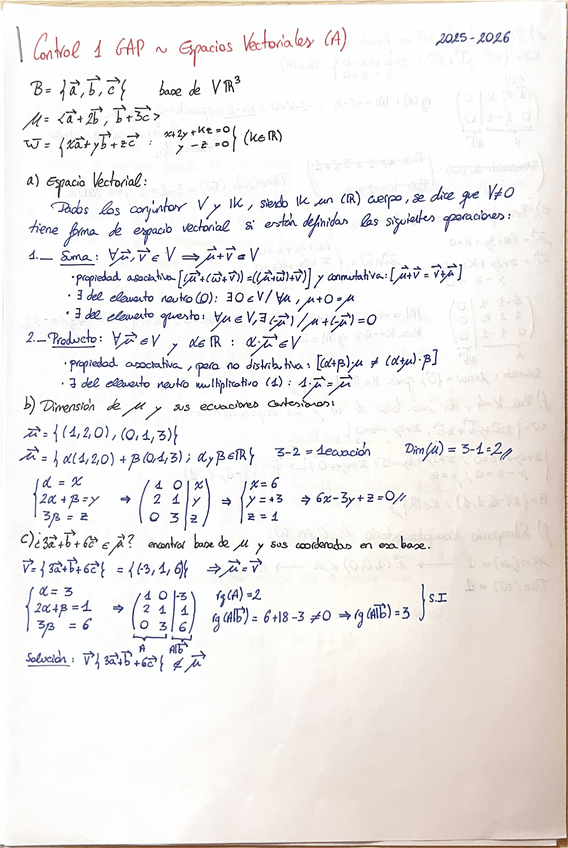 Control 1 GAP ~ Espacios Vectoriales (A) 2025-2026
B = {a⃗, b⃗, c⃗} base de V ℝ³
μ = <a⃗+2b⃗, b⃗+3c⃗>
w⃗ = {xa⃗+yb⃗+zc⃗ : x+2y+Kz=0
y-z=0} (K∈ℝ)
a) Espacio Vectorial:
Dados los conjuntos V y IK, siendo IK un (ℝ) cuerpo, se dice que V≠0
tiene forma de espacio vectorial si están definidas las siguientes operaciones:
1._ Suma: ∀μ⃗,v⃗ ∈ V ⟹ μ⃗+v⃗ ∈ V
· propiedad asociativa [(μ⃗+(w⃗+v⃗)) = ((μ⃗+w⃗)+v⃗)] y conmutativa: [μ⃗+v⃗ = v⃗+μ⃗]
· ∃ del elemento neutro (0): ∃0∈V / ∀μ, μ+0=μ
· ∃ del elemento opuesto: ∀μ∈V, ∃(-μ⃗) / μ+(-μ⃗)=0
2._ Producto: ∀μ⃗∈V y α∈ℝ : α·μ⃗∈V
· propiedad asociativa, pero no distributiva: [(α+β)·μ ≠ (α+μ)·β]
· ∃ del elemento neutro multiplicativo (1): 1·μ⃗=μ⃗
b) Dimensión de μ y sus ecuaciones cartesianas:
μ⃗ = {(1,2,0), (0,1,3)}
μ⃗ = {α(1,2,0) + β(0,1,3) ; α,β∈ℝ} 3-2=1ecuación Dim(μ) = 3-1=2//
{α = x
2α+β=y
3β = z ⇒ (1 0 | x
2 1 | y
0 3 | z) ⇒ {x=6
y=+3
z=1 ⇒ 6x-3y+z=0//
c) ¿3a⃗+b⃗+6c⃗ ∈ μ⃗? encontrar base de μ y sus coordenadas en esa base.
v⃗={3a⃗+b⃗+6c⃗} = {(-3,1,6)} ⇒ μ⃗=v⃗
{α = 3
2α+β=1
3β = 6 ⇒ (1 0 | -3
2 1 | 1
0 3 | 6) rg(A)=2
rg(A|b⃗) = 6+18-3 ≠0 ⇒ rg(A|b⃗)=3 } S.I
A A|b⃗
Solución: v⃗{3a⃗+b⃗+6c⃗} ∉ μ⃗